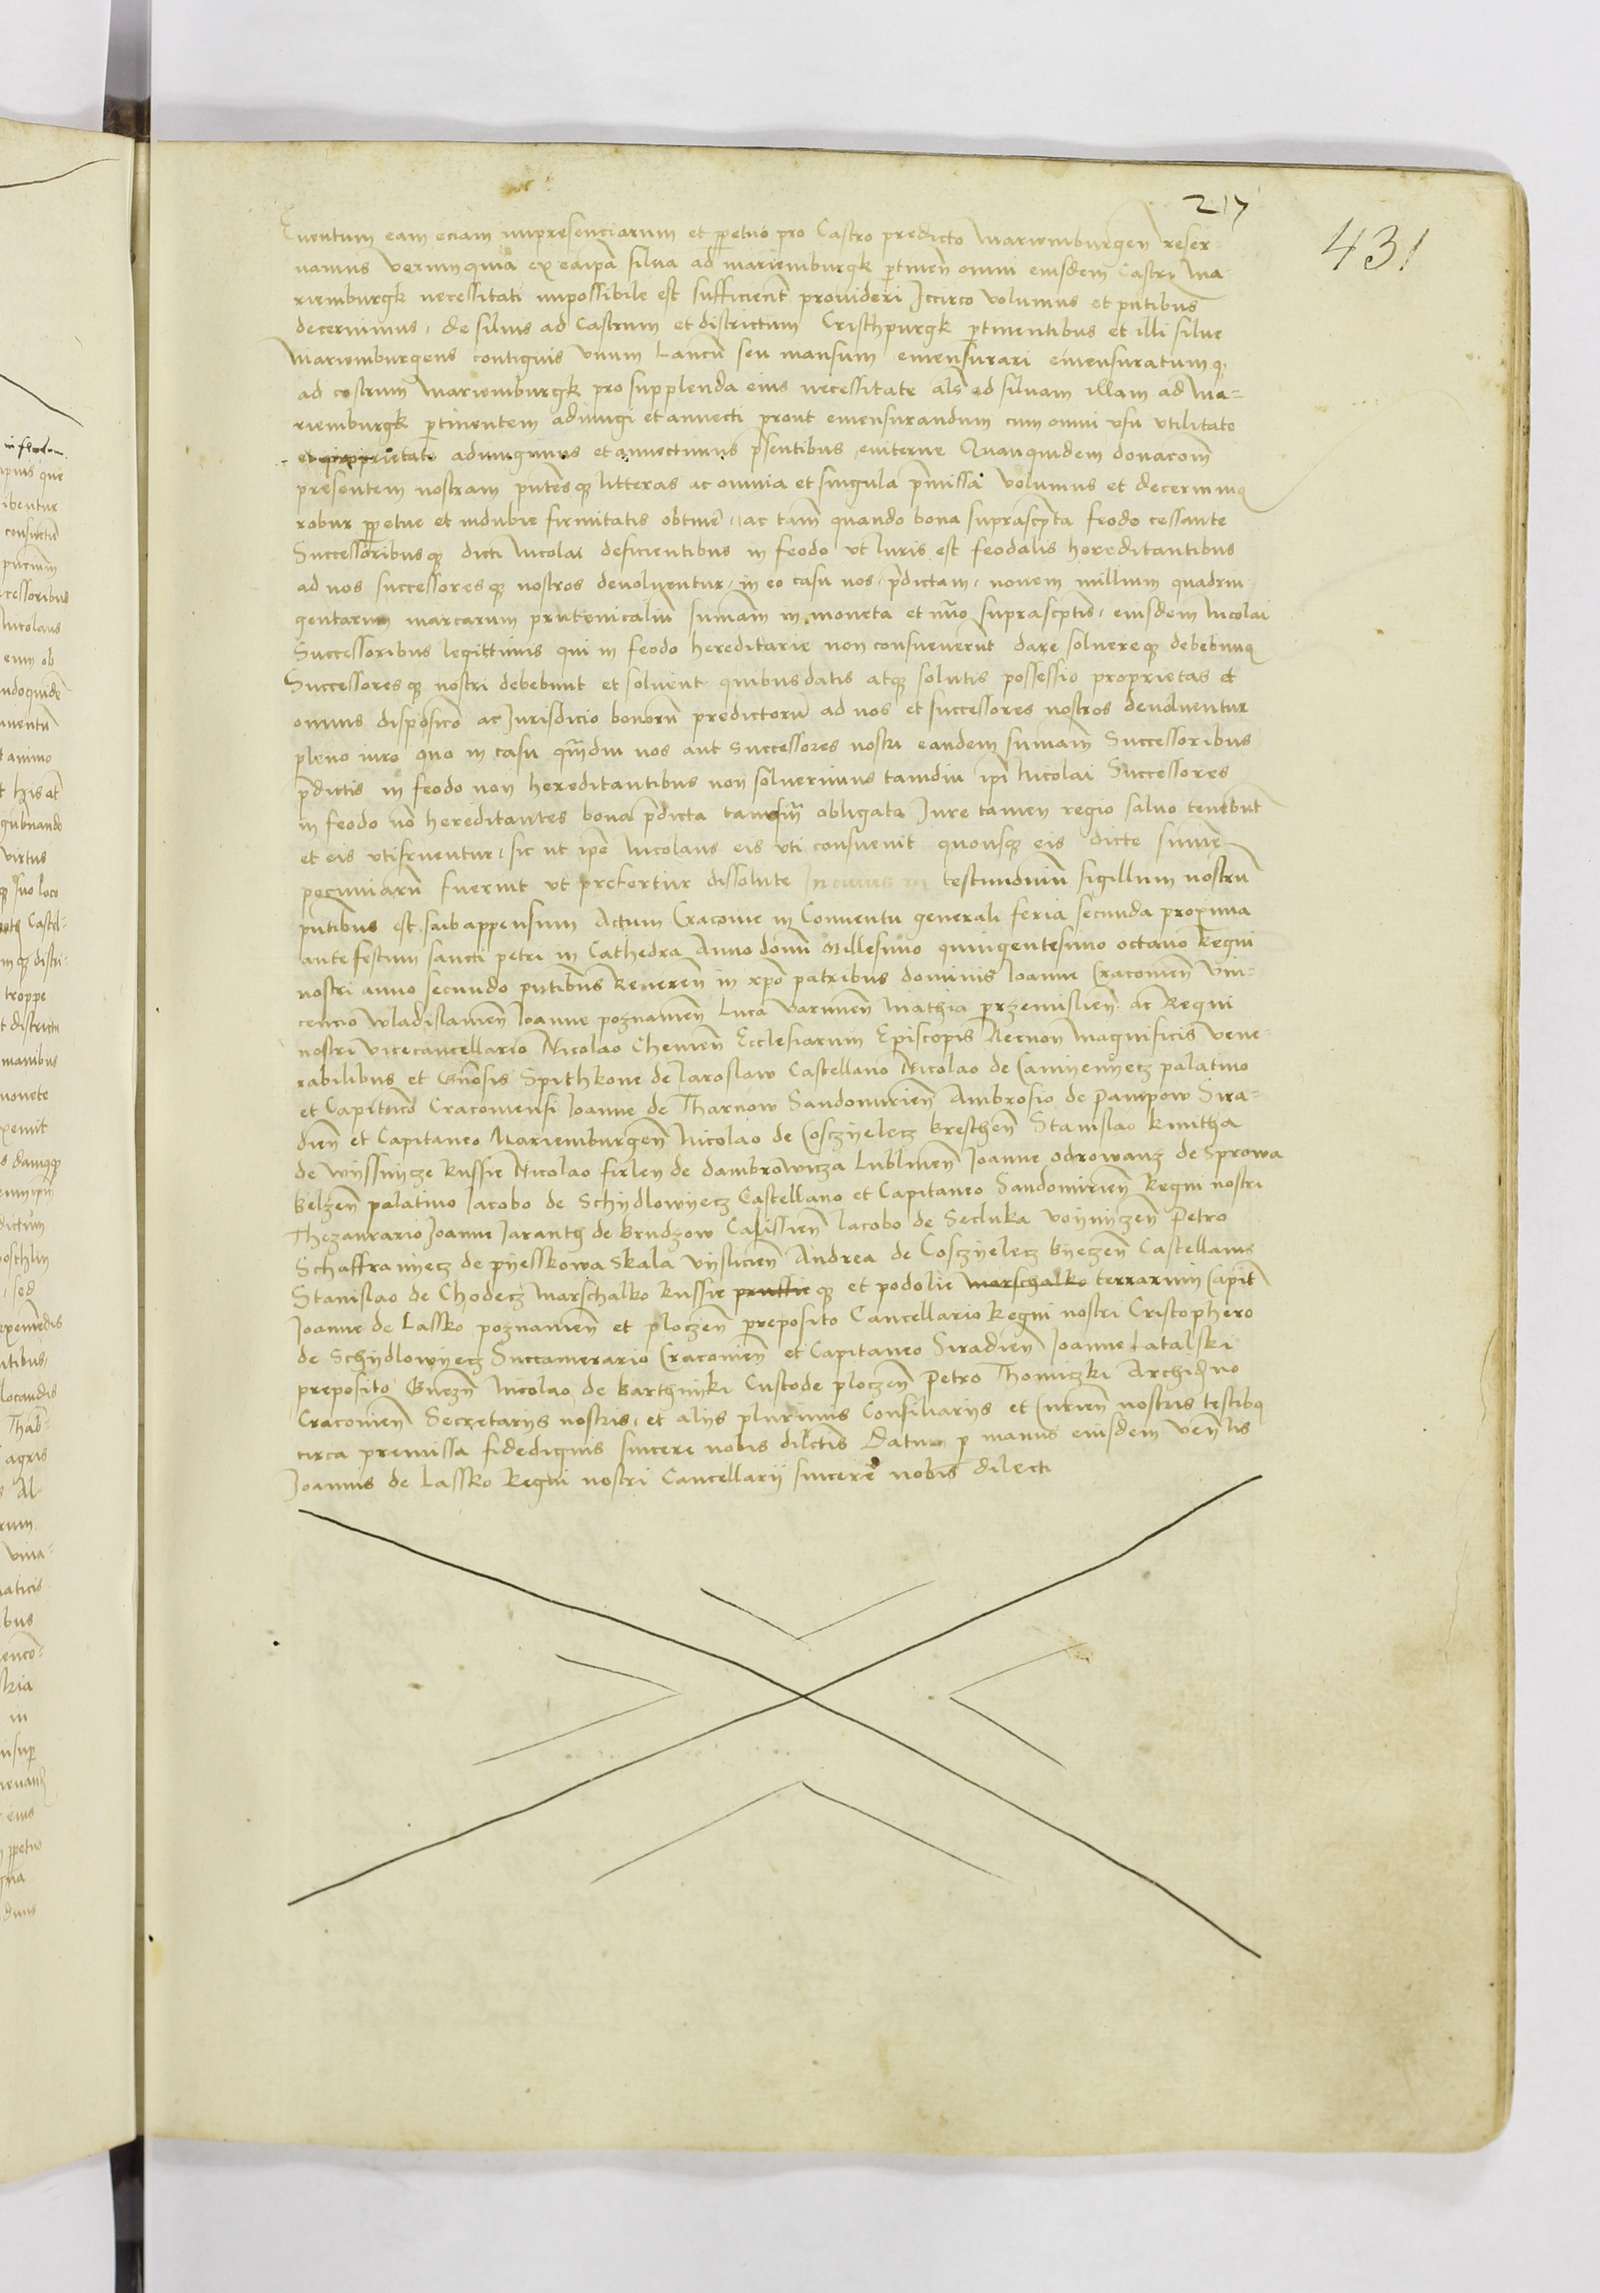 217
431
Euentum eam eciam inpresenciarum et ppetuo pro Castro predicto Mariemburgen reser-
uamus verumquia ex eaipa silua ad mariemburgk ptinen omni eiusdem Castri Ma
riemburgk necessitati impossibile est sufficient prouideri Iccirco volumus et pntibus
decernimus, de siluis ad Castrum et districtum Cristhpurgk ptinentibus et illi silue
Mariemburgens contiguis vnum Laneu seu mansum emensurari emensuratumq
ad castrum Mariemburgk pro supplenda eius necessitate als ad siluam illam ad Ma-
riemburgk ptinentem adiungi et annecti prout emensurandum cum omni vsu vtilitate
et proprietate adiungimus et annectimus psentibus euiterne Quamquidem donacom
presentem nostram pntesq litteras ac omnia et singula pmissa volumus et decernimq
robur ppetue et indubie firmitatis obtine, ac tam quando bona suprascpta feodo cessante
Successoribusq dicti Nicolai deficientibus in feodo vt Iuris est feodalis hereditantibus
ad nos successoresq nostros deuoluentur, in eo casu nos, pdictam, nouem millium quadrin
gentarum marcarum prutenicaliu sumam in moneta et nuo suprascptis, eiusdem Nicolai
Successoribus legittimis qui in feodo hereditarie non consueuerunt dare soluereq debebimq
Successoresq nostri debebunt et soluent quibus datis atq solutis possessio proprietas et
omnis disposico ac Iurisdicio bonoru predictoru ad nos et successores nostros deuoluentur
pleno iure quo in casu qmdiu nos aut Successores nostri eandem sumam Successoribus
pdictis in feodo non hereditantibus non soluerimus tamdiu ipi Nicolai Successores
in feodo no hereditantes bona pdicta tamqm obligata Iure tamen regio saluo tenebunt
et eis vtifruentur, sic ut ipe Nicolaus eis vti consueuit quousq eis dicte sume
pecuniaru fuerint vt prefertur dissolute In cuius rei testimoniu sigillum nostru
pntibus est subappensum Actum Cracouie in Conuentu generali feria secunda proxima
ante festum sancti petri in Cathedra Anno domi Millesimo quingentesimo octauo Regni
nostri anno secundo pntibus Reueren in xpo patribus dominis Ioanne Cracouien Vin-
cencio Wladislauien Ioanne poznanien Luca Varmien Mathia przemislien ac Regni
nostri vicecancellario Nicolao Chemen Ecclesiarum Episcopis Necnon magnificis vene-
rabilibus et Gnosis Spithkone de Iaroslaw Castellano Nicolao de Camyenyecz palatino
et Capitaneo Cracouiensi Ioanne de Tharnow Sandomirien Ambrosio de Pampow Sira-
dien et Capitaneo Mariemburgen Nicolao de Cosczyelecz bresthen Stanislao kmitha
de Wyssnycze Russie Nicolao firley de dambrowicza Lublinen Ioanne odrowanz de Sprowa
belzen palatino Iacobo de Schydlowyecz Castellano et Capitaneo Sandomirien Regni nostri
Thezaurario Ioanne Iarantz de brudzow Calissien Iacobo de Secluka Voynyczen Petro
Schaffranyecz de pyesskowa Skala Vyslicien Andrea de Cosczyelecz byeczen Castellanis
Stanislao de Chodecz Marschalko Russie prussie q et podolie Marschalko terrarum Capit
Ioanne de Lassko poznanien et ploczen preposito Cancellario Regni nostri Cristophero
de Schydlowyecz Succamerario Cracouien et Capitaneo Siradien Ioanne Latalski
preposito Gnezn Nicolao de bartznyki Custode ploczen Petro Thomiczki Archidno
Cracouien Secretarys nostris, et alys plurimis Consiliarys et Curien nostris testibq
circa premissa fidedignis sincere nobis dilctis Datum p manus eiusdem venlis
Ioannis de Lassko Regni nostri Cancellarij sincere nobis dilecti